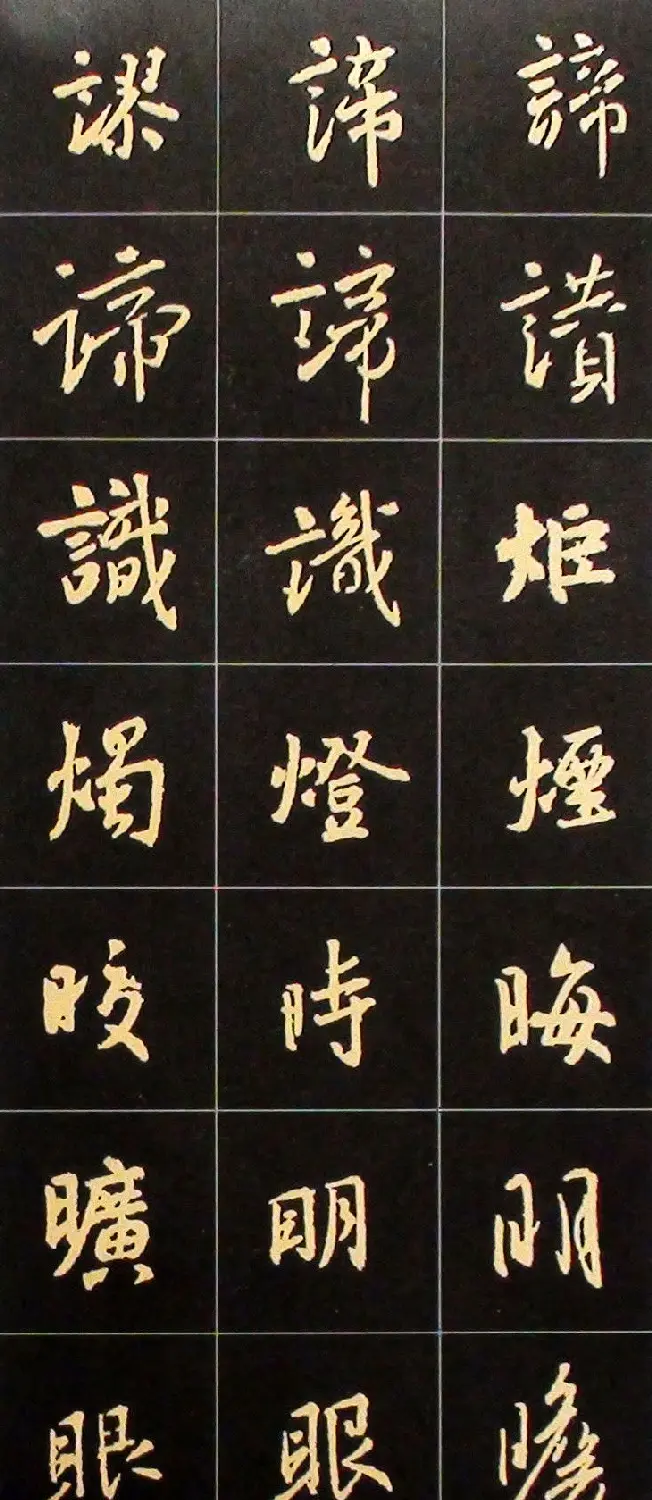 謬 諦 諦
諦 諦 讀
識 識 炬
燭 燈 煙
晈 時 晦
曠 明 明
眼 眼 瞻